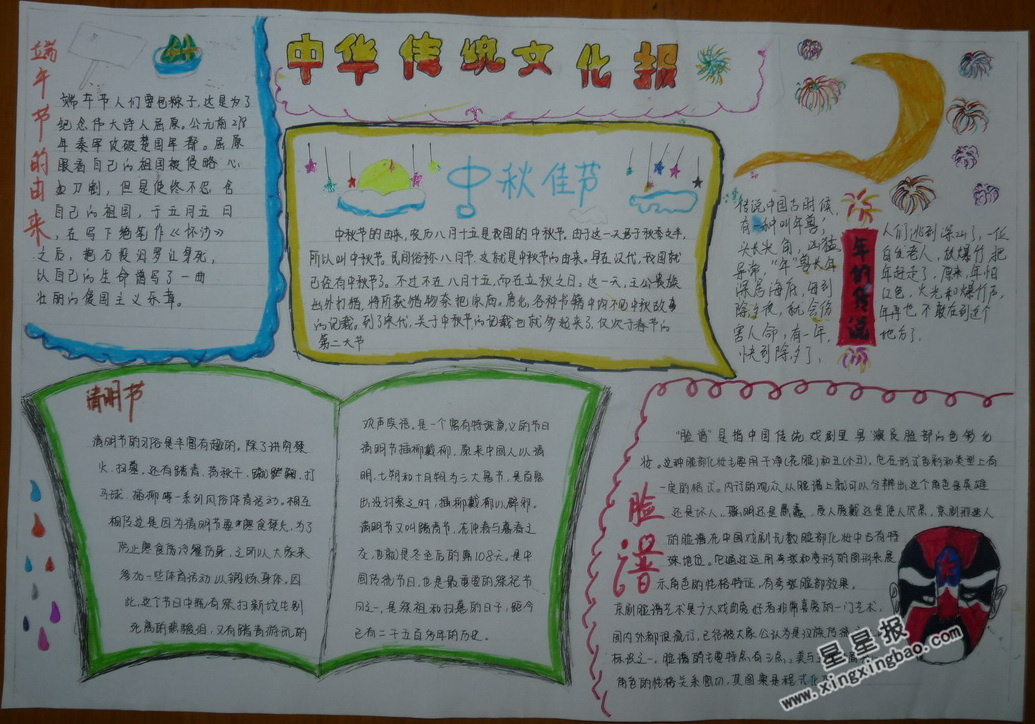 中华传统文化报
端午节的由来
端午节人们要包粽子,这是为了
纪念伟大诗人屈原。公元前278
年秦军攻破楚国军都。屈原
眼看自己的祖国被侵略 心
如刀割,但是使终不忍 舍
自己的祖国,于五月五 日
,在写下绝笔作《怀沙》
之后,抱石投汨罗江身死,
以自己的生命谱写了一曲
壮丽的爱国主义乐章。
中秋佳节
中秋节的由来,农历八月十五是我国的中秋节。由于这一天居于秋季之中,
所以叫中秋节。民间俗称八月节。这就是中秋节的由来。早在汉代,我国就
已经有中秋节了。不过不在八月十五,而在立秋之日。这一天,王公贵族
出外打猎,将所获猎物奉祀家庙。唐化,各种书籍中内不见中秋故事
的记载。到了宋代,关于中秋节的记载也就多起来了,仅次于春节的
第二大节
年的传说
传说中国古时候,
有一种叫年兽;
头长尖角,凶猛
异常,“年”兽长年
深居海底,每到
除夕夜,就会伤
害人命,有一年,
快到除夕了,
人们逃到深山了,一位
白发老人,放爆竹 把
年赶走了,原来,年怕
红色,火光和爆竹声,
年再也 不敢在到这个
地方了.
清明节
清明节的习俗是丰富有趣的,除了讲究禁
火、扫墓,还有踏青、荡秋千、蹴鞠、打
马球、插柳等一系列风俗体育活动。相互
相传这是因为清明节要寒食禁火,为了
防止寒食冷餐伤身,之所以大家来
参加一些体育活动,以锻炼身体。因
此,这个节日中既有祭扫新坟生别
死离的悲酸泪,又有踏青游玩的
欢声笑语。是一个富有特殊意义的节日
清明节插柳戴柳,原来中国人以清
明、七朔和十月朔为三大鬼节,是百鬼
出没讨索之时,插柳戴柳以辟邪。
清明节又叫踏青节,在仲春与暮春之
交,也就是冬至后的第108天。是中
国传统节日,也是最重要的祭祀节
日之一,是祭祖和扫墓的日子,距今
已有二千五百多年的历史。
脸谱
“脸谱”是指中国传统戏剧里男演员脸部的色彩化
妆。这种脸部化妆主要用于净(花脸)和丑(小丑)。它在形式色彩和类型上有
一定的格式。内行的观众从脸谱上就可以分辨出这个角色是英雄
还是坏人,聪明还是愚蠢,受人爱戴还是使人厌恶,京剧那迷人
的脸谱在中国戏剧无数脸部化妆中占有特
殊地位。它通过运用夸张和变形的图形来展
示角色的性格特征。有夸张脸部效果。
京剧脸谱艺术是广大戏曲爱好者非常喜爱的一门艺术,
国内外都很流行,已经被大家公认为是汉族传统
标识之一。脸谱的主要特点有三点:美与
角色的性格关系密切,其图案是程式化
星星报
www.xingxingbao.com